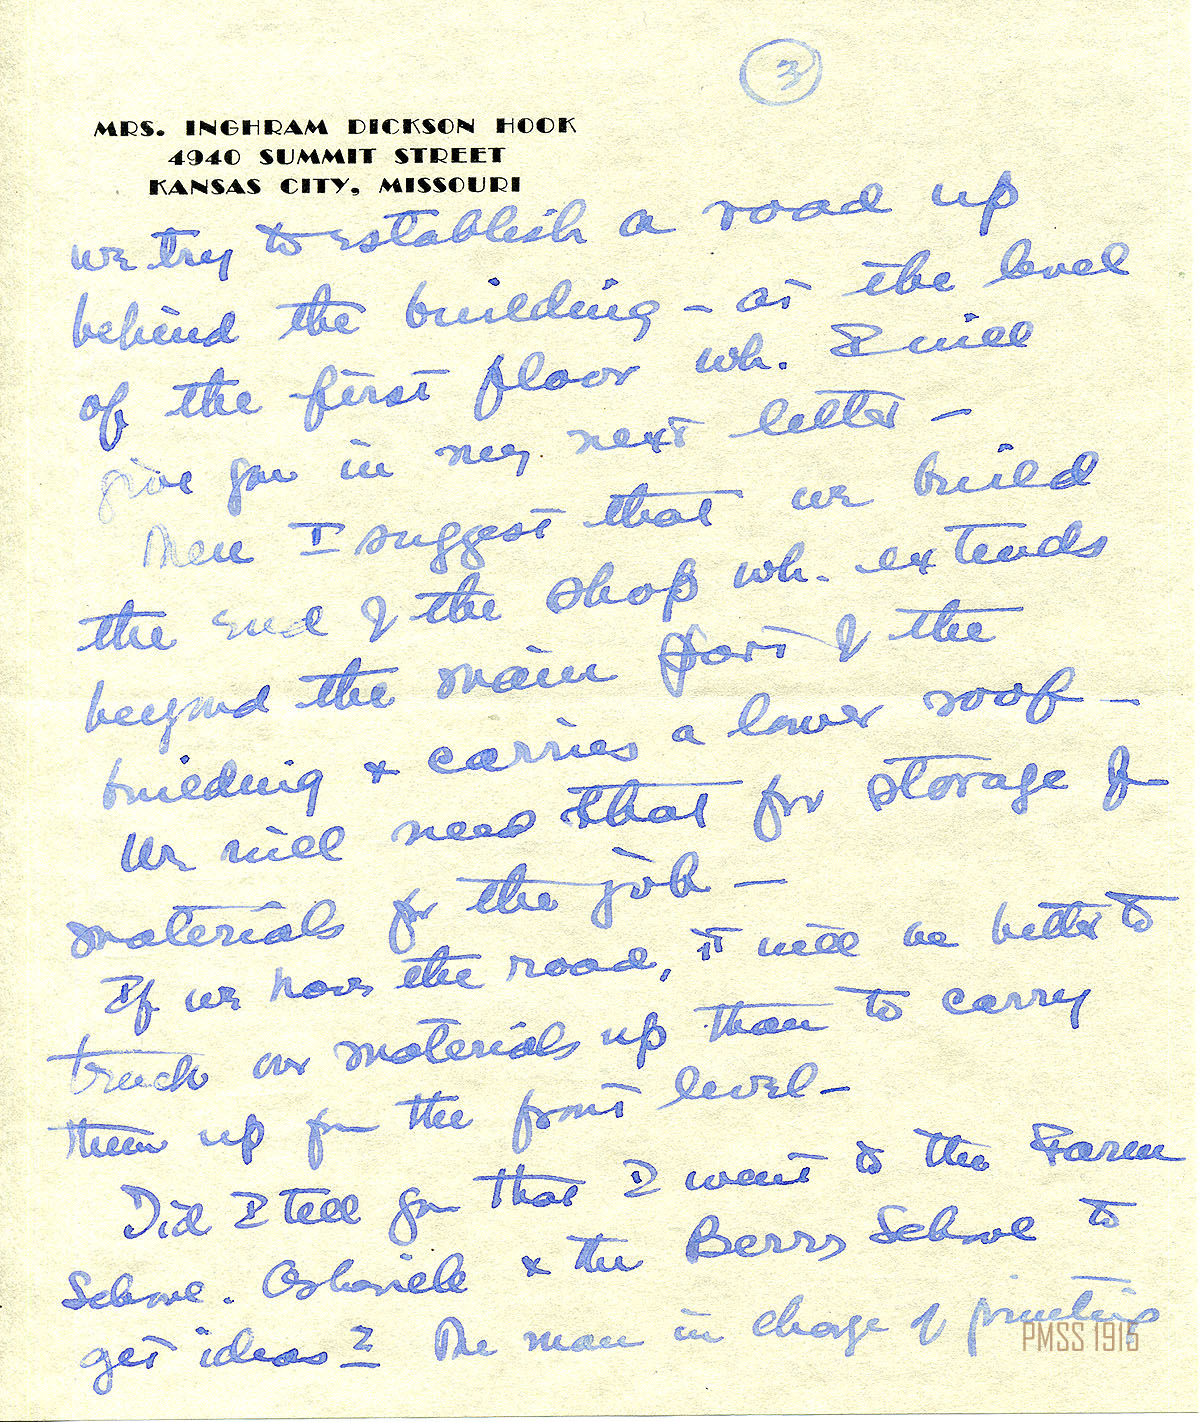 3
MRS. INGHRAM DICKSON HOOK
4940 SUMMIT STREET
KANSAS CITY, MISSOURI
we try to establish a road up
behind the building – at the level
of the first floor wh. I will
give you in my next letter –
Then I suggest that we build
the end of the shop wh. extends
beyond the main part of the
building & carries a lower roof –
We will need that for storage of
materials for the job –
If we have the road, it will be better to
truck our materials up than to carry
them up from the front level –
Did I tell you that I went to the Farm
School. Asheville & the Berry School to
get ideas? The man in charge of printing
PMSS 1915